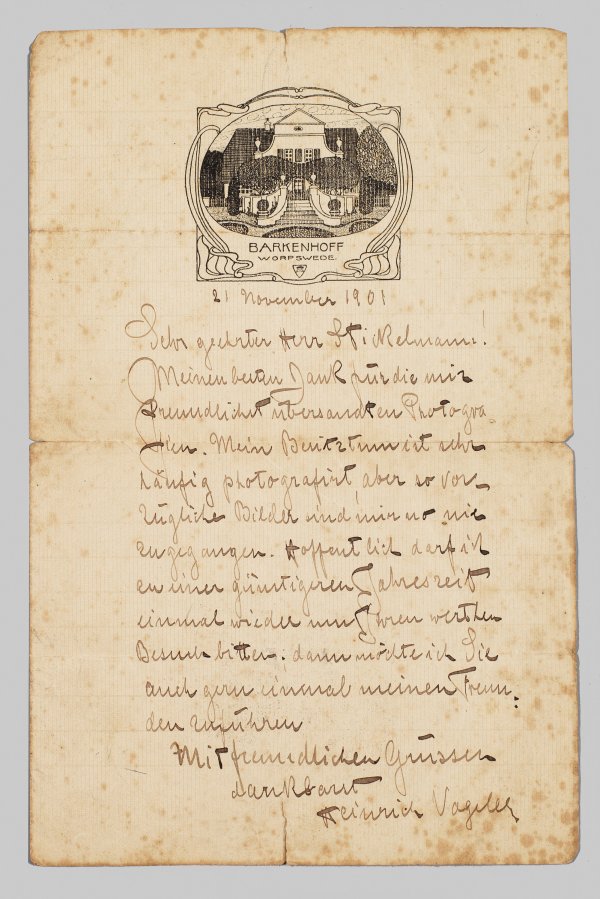 BARKENHOFF
WORPSWEDE.
21 November 1901
Sehr geehrter Herr Stickelmann!
Meinen besten Dank für die mir
freundlichst übersandten Photogra-
fien. Mein Besitztum ist sehr
häufig photografirt, aber so vor-
zügliche Bilder sind mir no nie
zugegangen. Hoffentlich darf ich
en einer günstigeren Jahreszeit
einmal wieder um Ihren werthen
Besuch bitten. dann möchte ich Sie
auch gern einmal meinen Freun-
den zuführen
Mit freundlichen Grüssen
dankbar
Heinrich Vogeler